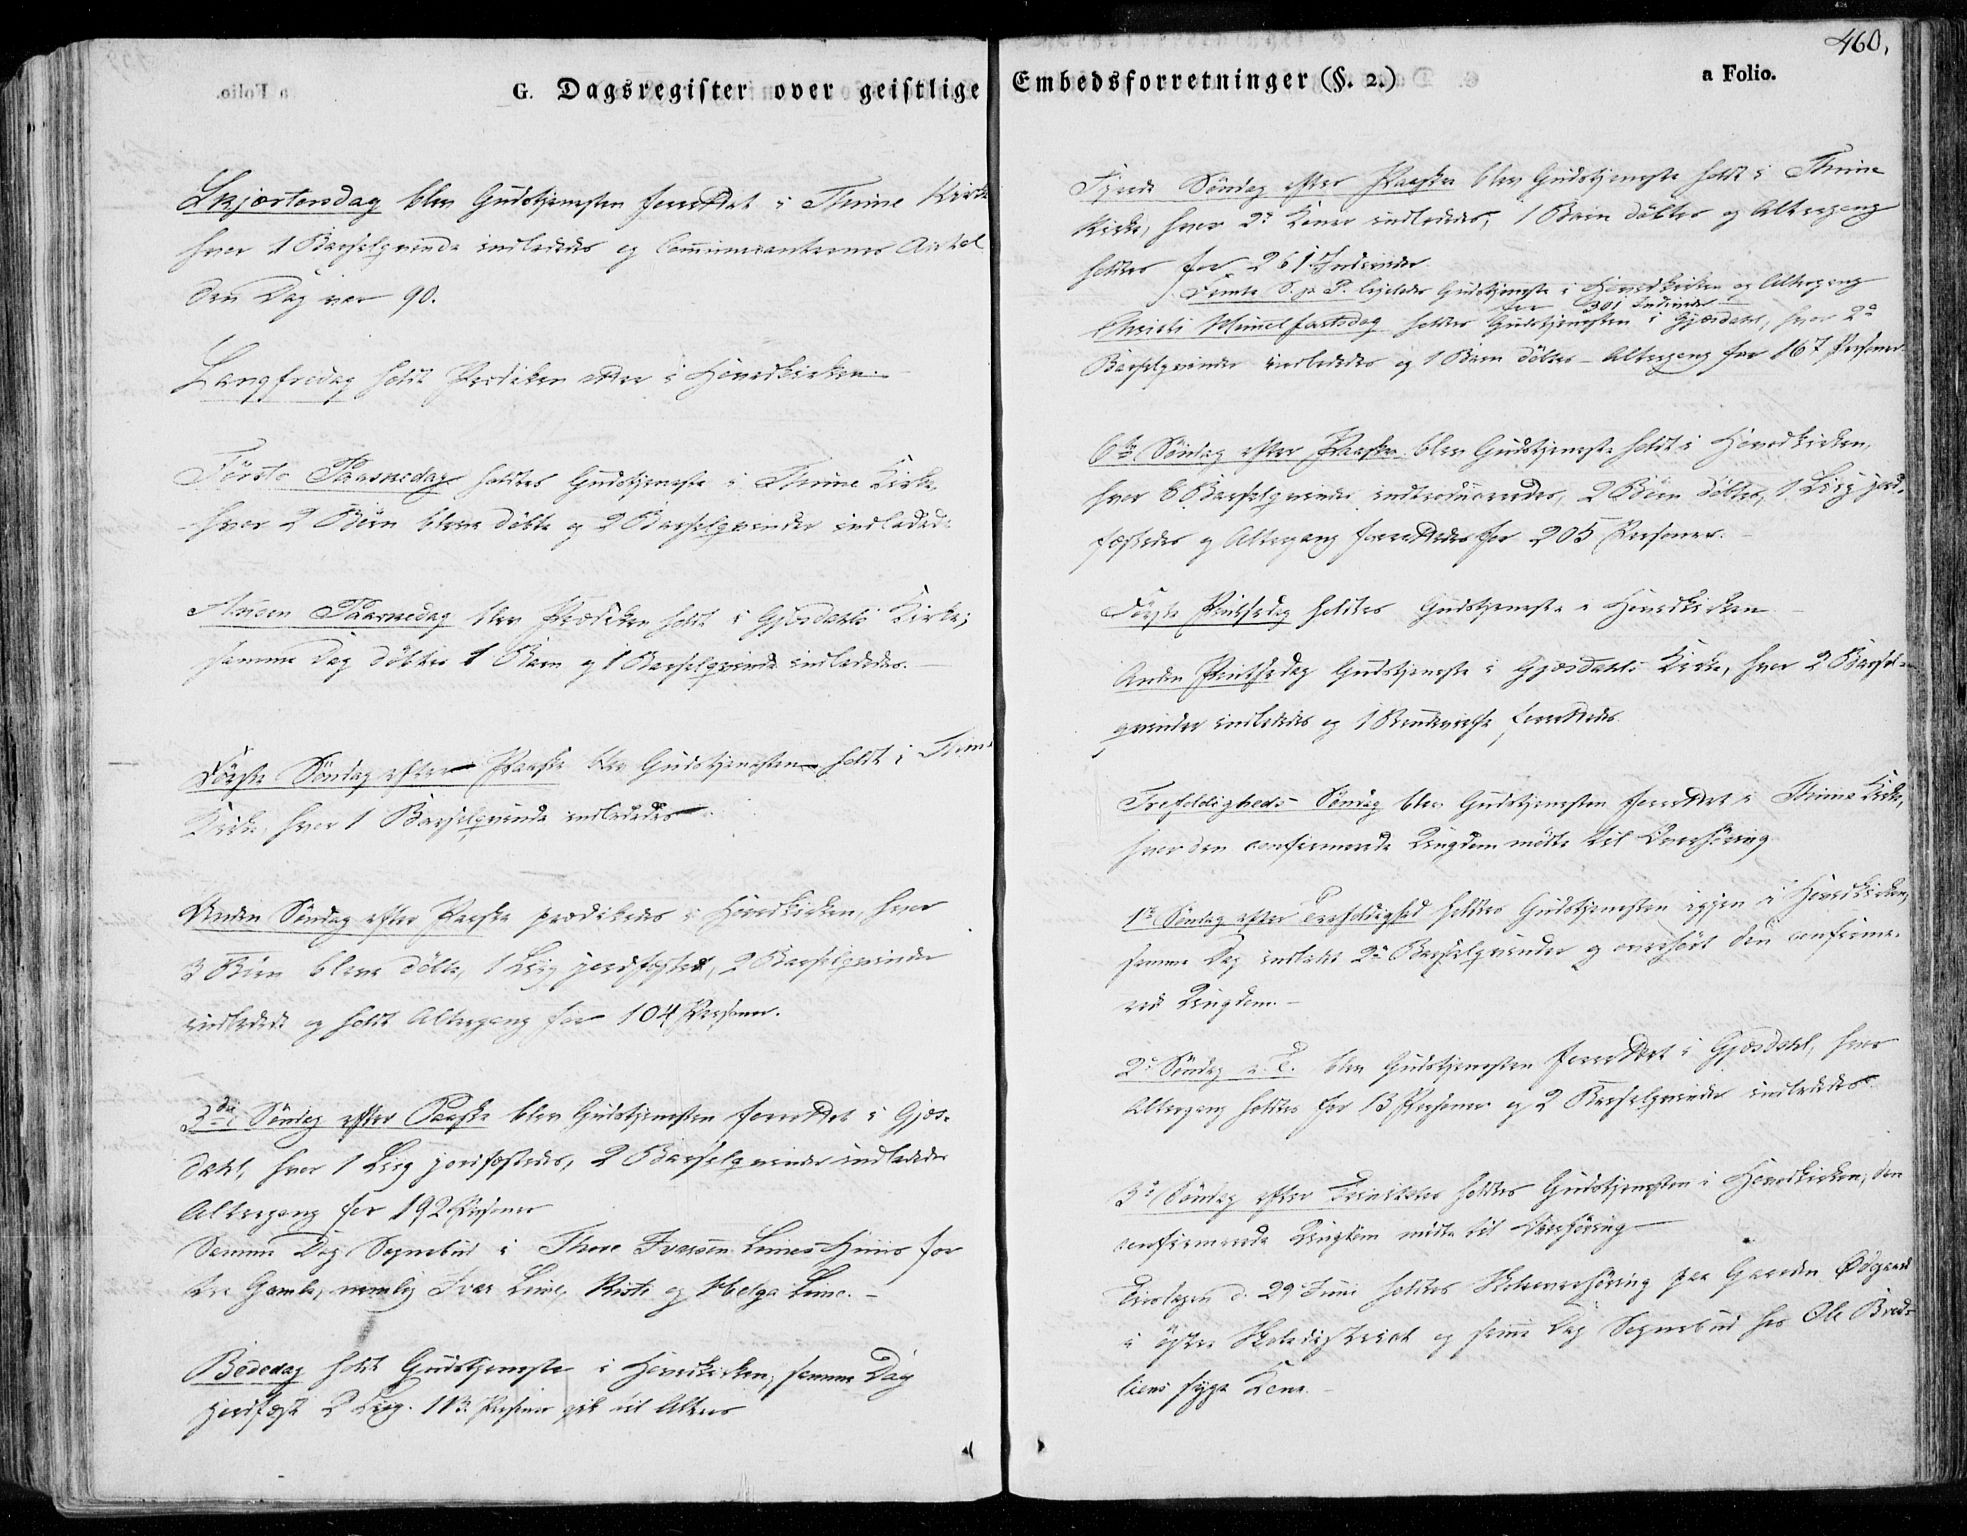 G. Dagsregister over geistlige
Skjærtorsdag blev Gudstjenesten forrettet i Thime Kirke
hvor 1 Barselqvinde indlededes og Communicanternes Antal
den Dag var 90.
Langfredag holdt Prædiken atter i Hovedkirken.
Første Paaskedag holdtes Gudstjeneste i Thime Kirke,
hvor 2 Børn bleve døbte og 2 Barselqvinder indledede
Anden Paaskedag blev Prædiken holdt i Gjesdahls Kirke;
samme Dag døbtes 1 Barn og 1 Barselqvinde indlededes.
Første Søndag efter Paaske blev Gudstjenesten holdt i Thime
Kirke, hvor 1 Barselqvinde indlededes
Anden Søndag efter Paaske prædikedes i Hovedkirken, hvor
3 Børn bleve døbte, 1 Liig jordfæstet, 2 Barselqvinder
indledede og holdt Altergang for 104 Personer.
3die Søndag efter Paaske blev Gudstjenesten forrettet i Gjes-
dahl, hvor 1 Liig jordfæstedes, 2 Barselqvinder indledede
Altergang for 192 Personer
Samme Dag Sognebud i Thore Ivarsen Limes Huus for
tre Gamle, nemlig Ivar Lime, og Helga Lime.
Bededag holdt Gudstjeneste i Hovedkirken, samme Dag
jordfæst 2 Liig. 113 Personer gik til Alters
460.
Embedsforretninger (§. 2.)
a Folio.
Fjerde Søndag efter Paaske blev Gudstjeneste holdt i Thime
Kirke, hvor 2de Koner indlededes, 1 Barn døbtes og Altergang
holdtes for 261 Individer.
Femte S. p. P. Gudstjeneste i Hovedkirken og Altergang
for 301 Individer
Christi Himmelfartsdag holdtes Gudstjenesten i Gjesdahl, hvor 2de
Barselqvinder indlededes og 1 Barn døbtes – Altergang for 167 Personer
6te Søndag efter Paaske blev Gudstjeneste holdt i Hovedkirken,
hvor 8 Barselqvinder introduceredes, 2 Børn døbtes, 1 Liig jord-
fæstedes og Altergang forrettedes for 205 Personer.
Første Pintsedag holdtes Gudstjeneste i Hovedkirken
Anden Pintsedag Gudstjeneste i Gjesdahls Kirke, hvor 2 Barsel-
qvinder indlededes og 1 Brudevielse forrettedes
Trefoldigheds Søndag blev Gudstjenesten forrettet i Thime Kirke,
hvor den confirmerede Ungdom mødte til Overhøring
1ste Søndag efter Trefoldighed holdtes Gudstjenesten igjen i Hovedkirken,
samme Dag indledet 2de Barselqvinder og overhørt den confirme-
rede Ungdom.
2den Søndag e. T. blev Gudstjenesten forrettet i Gjesdahl, hvor
Altergang holdtes for 13 Personer og 2 Barselqvinder indlededes
3de Søndag efter Trinitatis holdtes Gudstjenesten i Hovedkirken, den
confirmerede Ungdom mødte til Overhøring
Tirsdagen d. 29 Juni holdtes Skoleoverhøring paa Gaarden Ødgaard
i østre Skoledistrict og samme Dag Sognebud hos Ole Breds-
liens syge Kone.